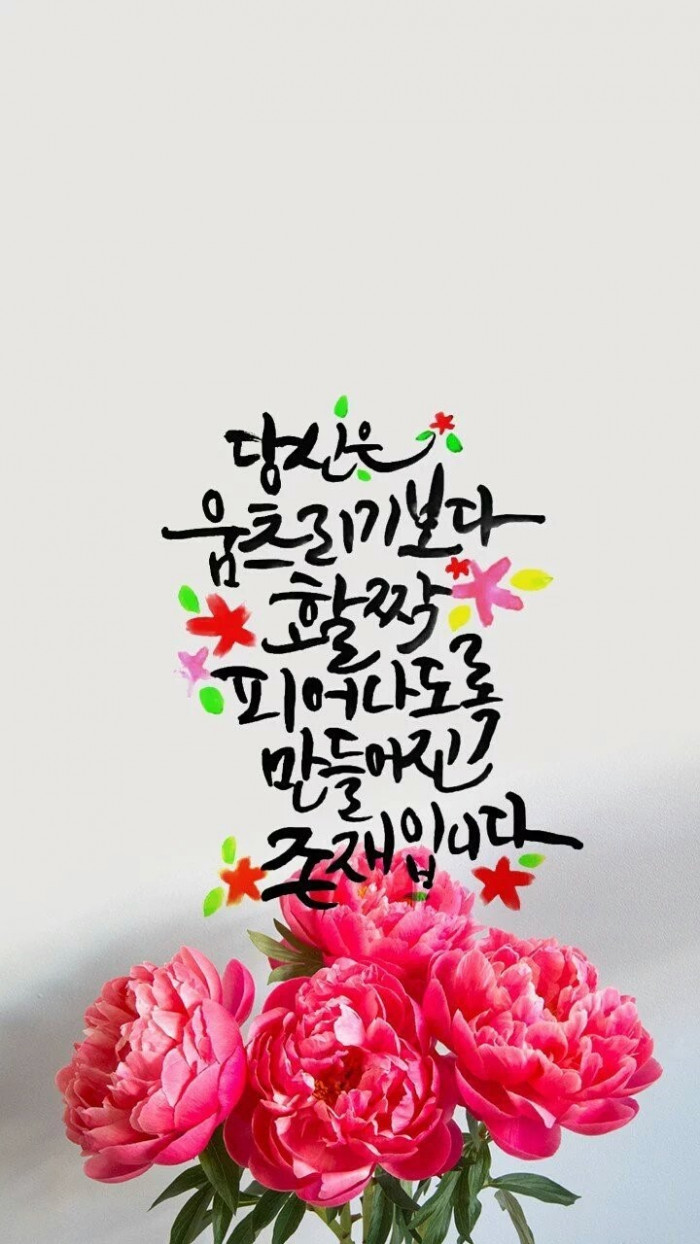 당신은
움츠리기보다
활짝
피어나도록
만들어진
존재입니다